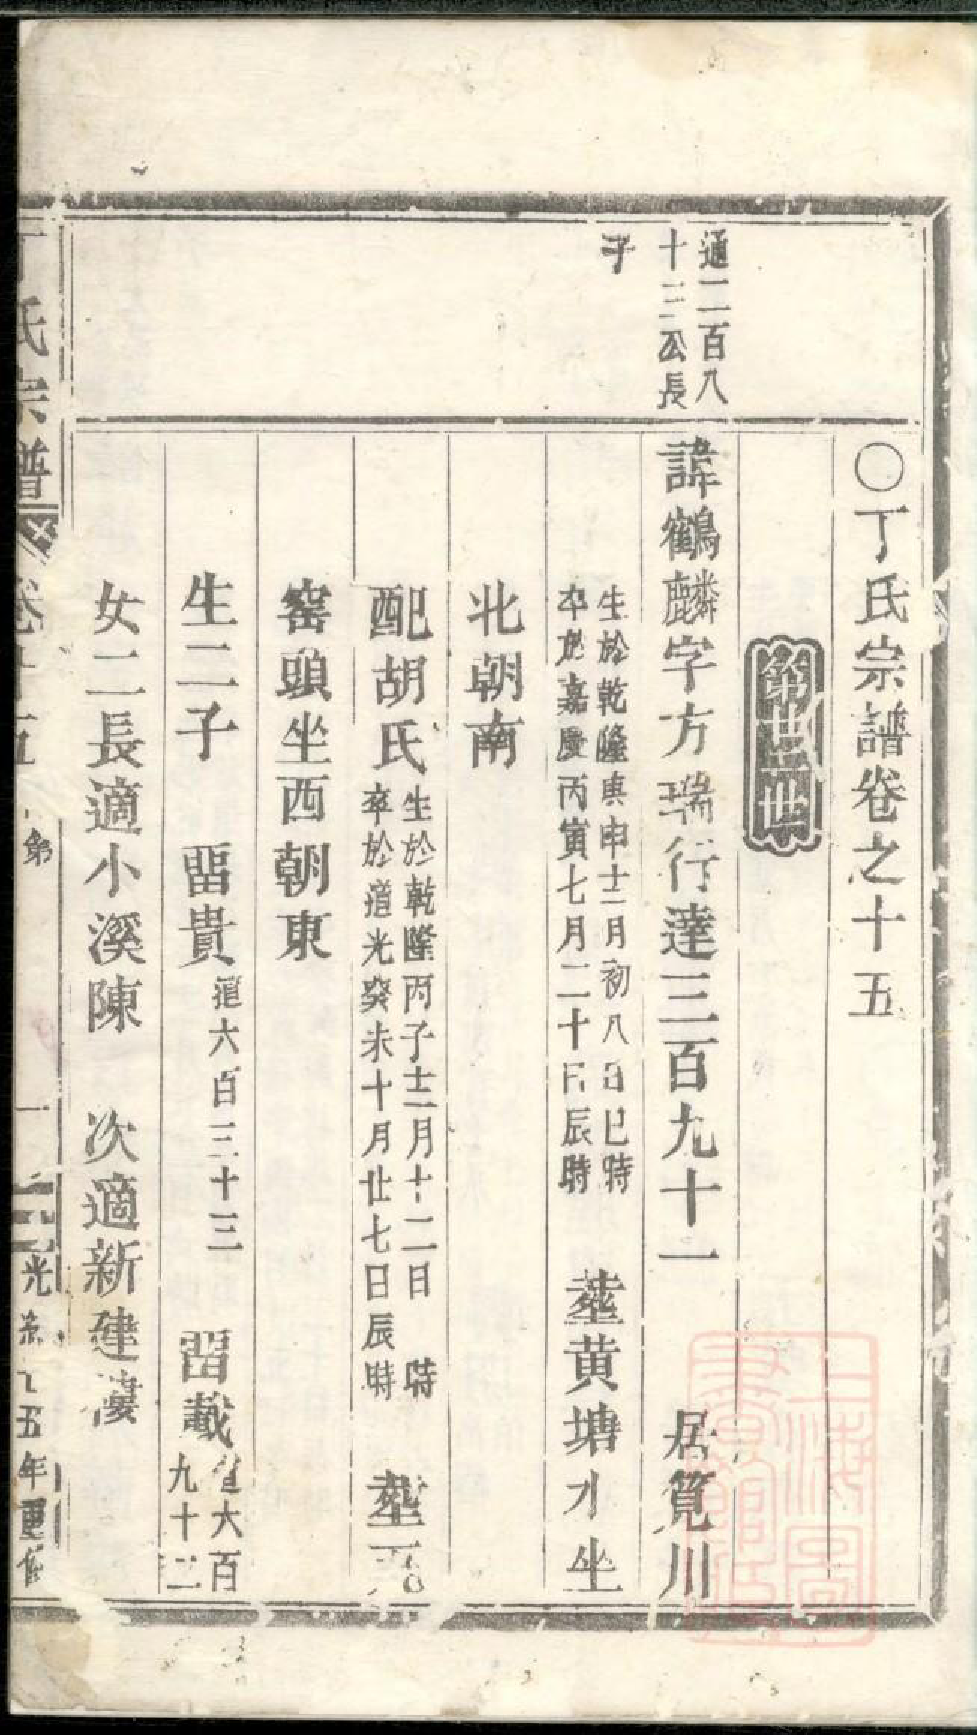 ○丁氏宗譜卷之十五
第世
通二百八
十三公長
子
諱鶴麟字方瑞行達三百九十一 居筧川
生於乾隆庚申十二月初八日巳時
卒於嘉慶丙寅七月二十日辰時
塟黄塘水坐
北朝南
配胡氏
生於乾隆丙子十二月十二日 時
卒於道光癸未十月廿七日辰時
塟
窑頭坐西朝東
生二子 畱貴
道六百三十三
畱載
道六百
九十二
女二長適小溪陳 次適新建凄
丁氏宗譜
卷十五
第
一
光緒十五年重修
上海圖書館藏